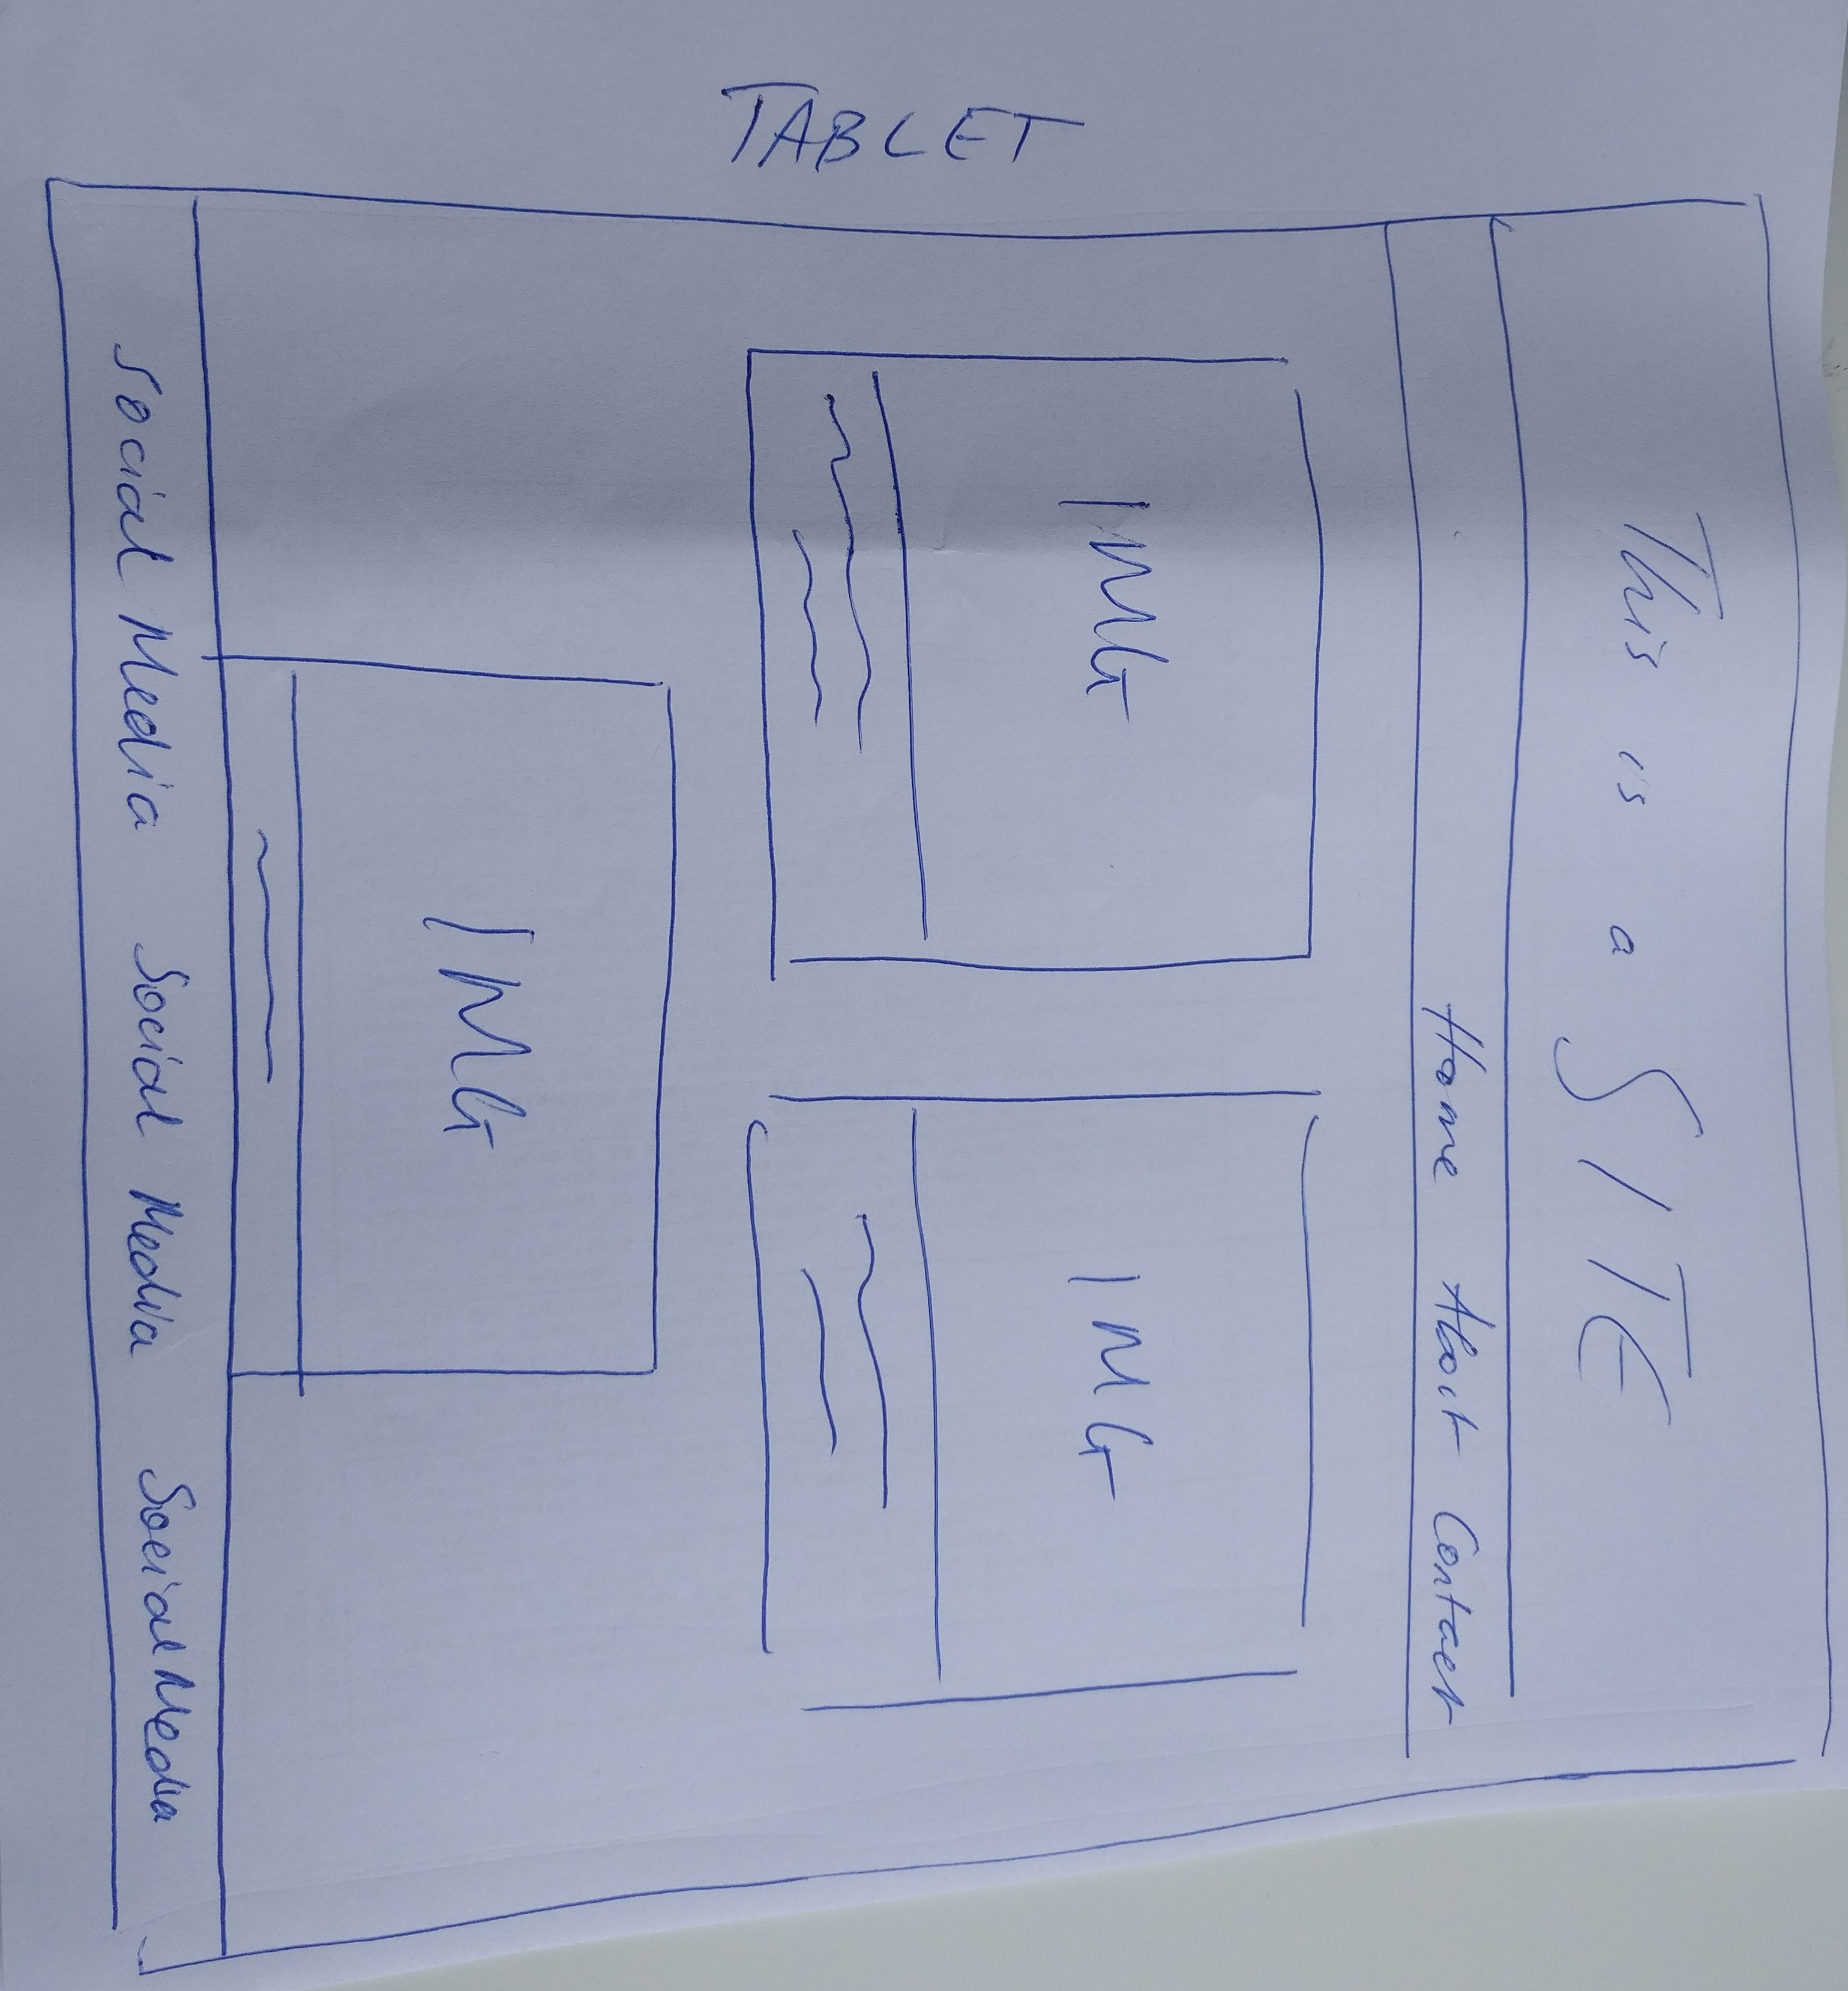 This is a SITE
Home About Contact
IMG IMG
TABLET
IMG
Social Media Social Media Social Media